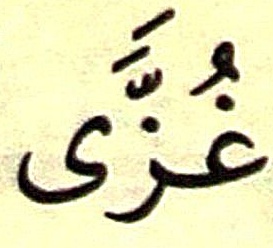 غُزًّى